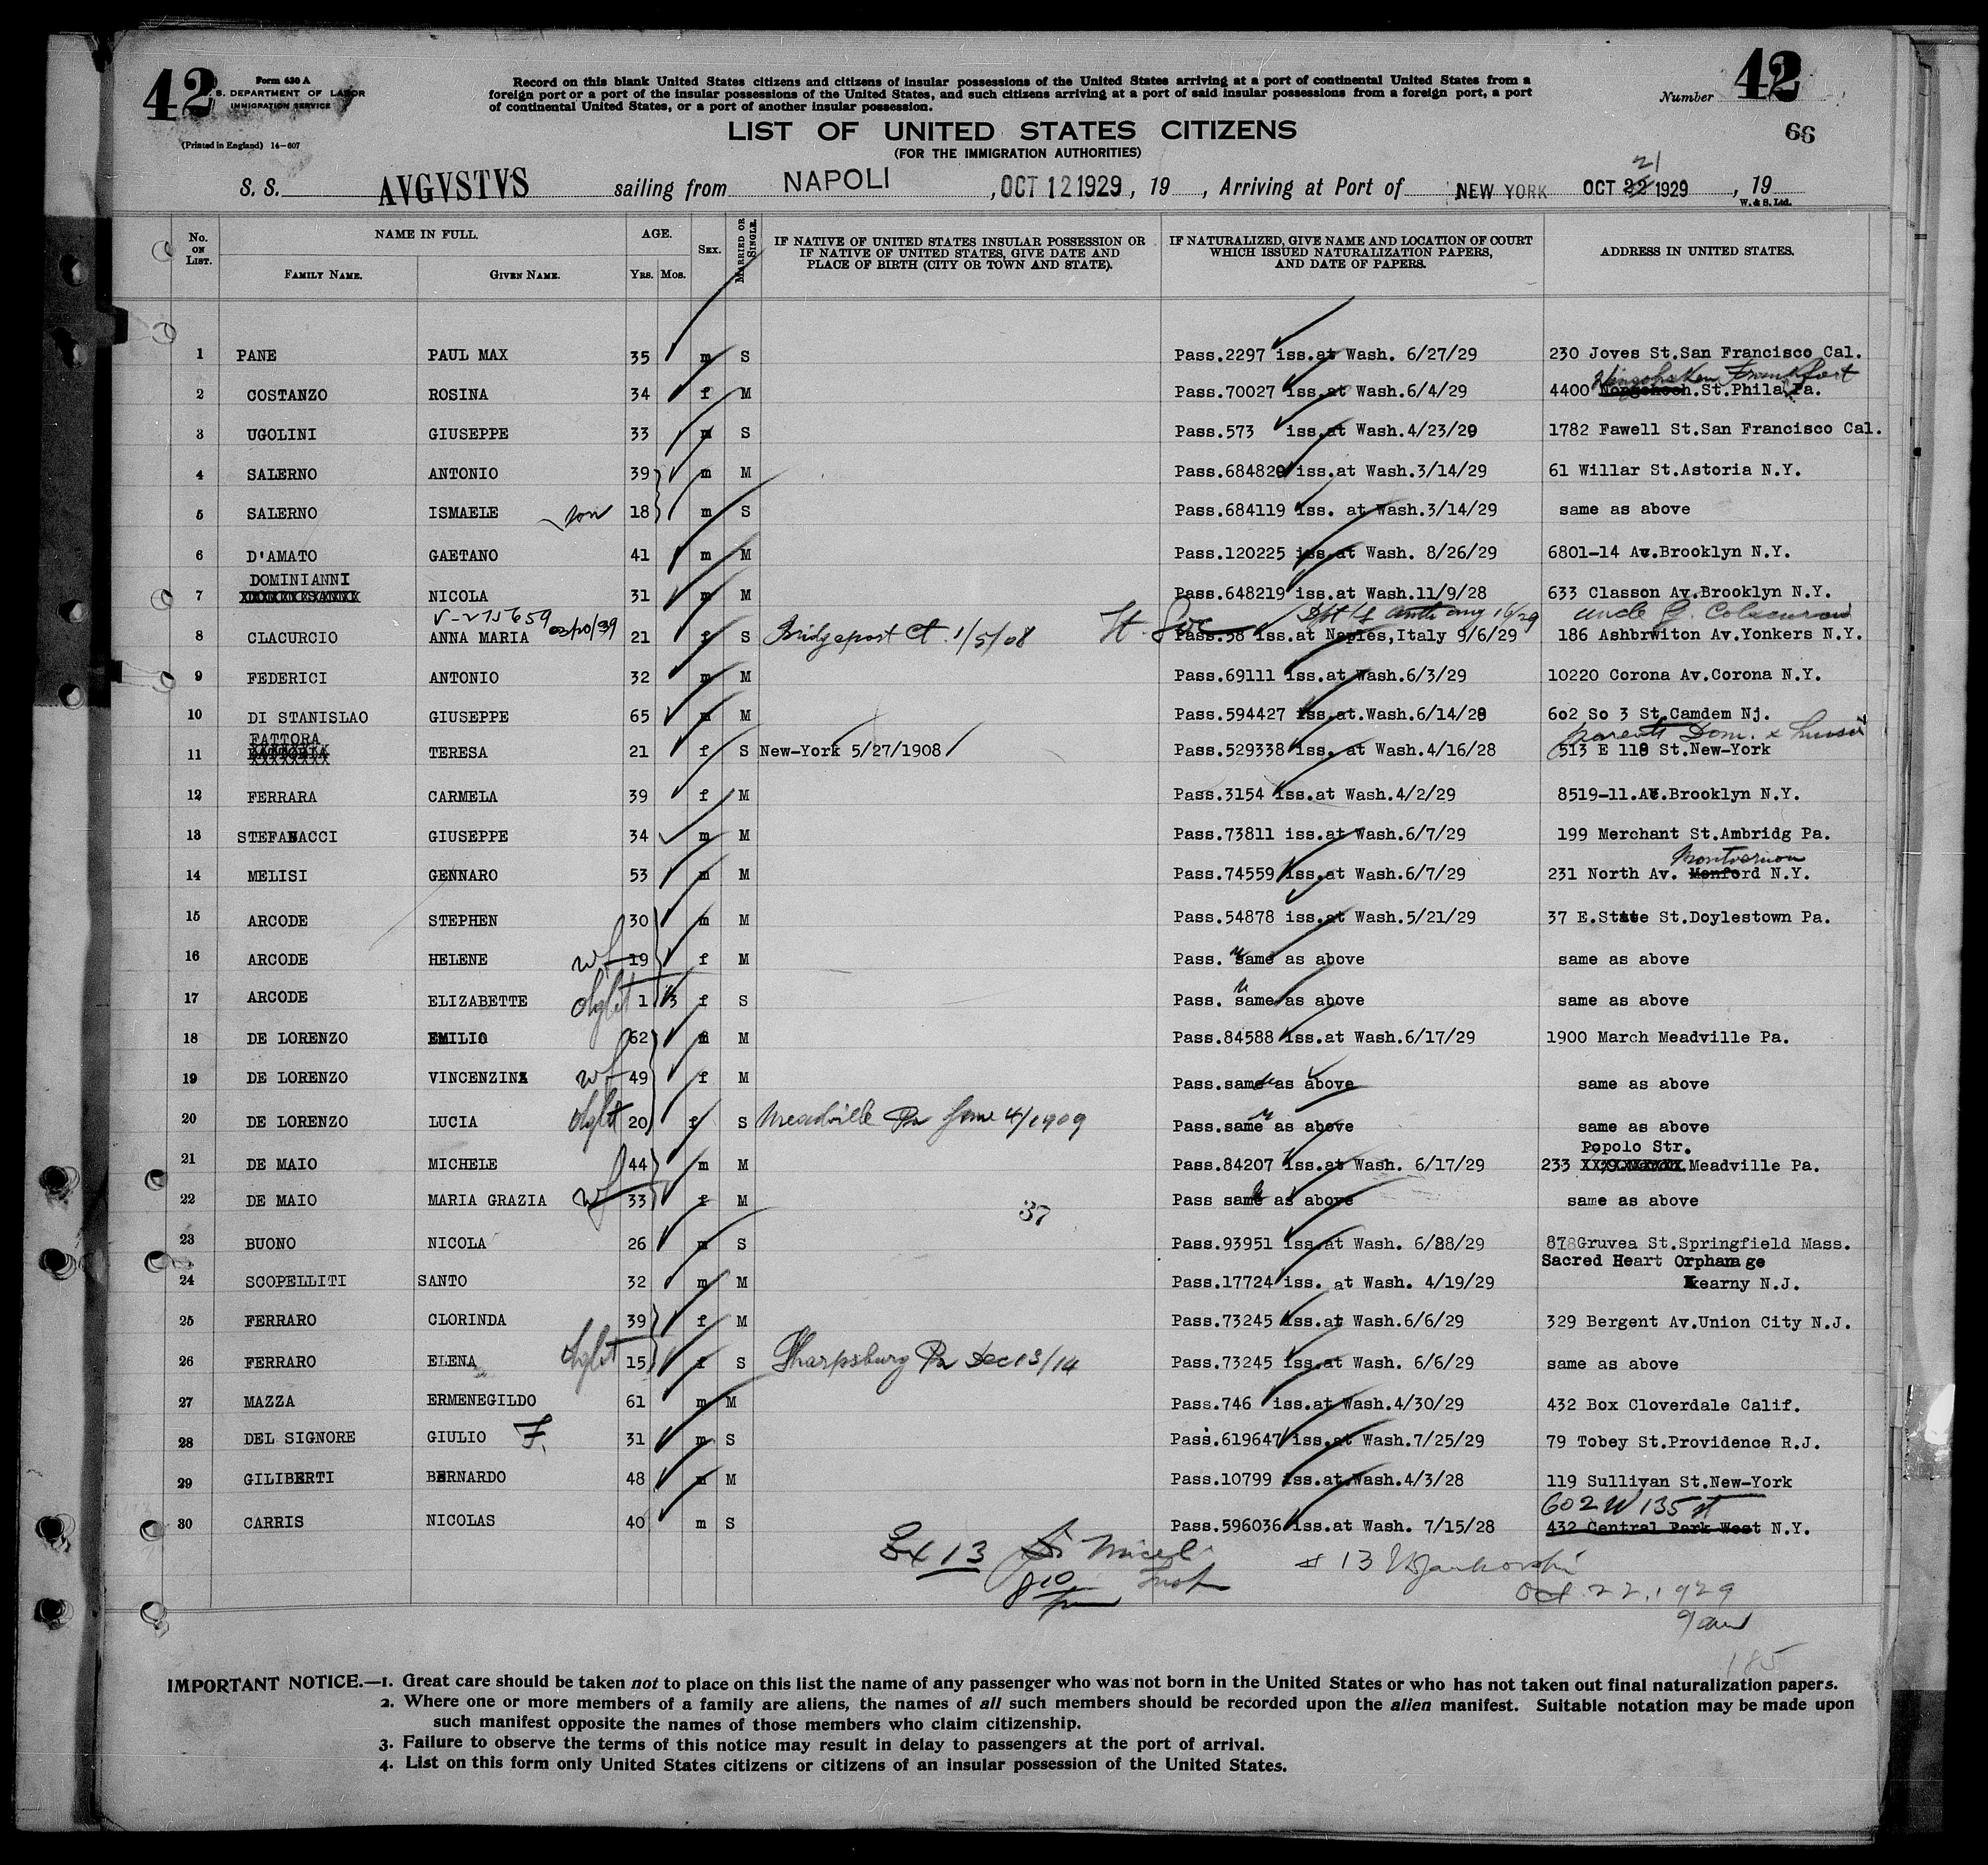 42
Form 630 A
S. DEPARTMENT OF LABOR
IMMIGRATION SERVICE
(Printed in England) 14-607
Record on this blank United States citizens and citizens of insular possessions of the United States arriving at a port of continental United States from a
foreign port or a port of the insular possessions of the United States, and such citizens arriving at a port of said insular possessions from a foreign port, a port
of continental United States, or a port of another insular possession.
Number 42
66
LIST OF UNITED STATES CITIZENS
(FOR THE IMMIGRATION AUTHORITIES)
21
S. S. AVGVSTVS sailing from NAPOLI, OCT 12 1929, 19 , Arriving at Port of NEW YORK OCT 22 1929, 19
W. & S. Ltd.
No. ON LIST. NAME IN FULL. FAMILY NAME. GIVEN NAME. AGE. YRS. MOS. SEX. MARRIED OR SINGLE. IF NATIVE OF UNITED STATES INSULAR POSSESSION OR IF NATIVE OF UNITED STATES, GIVE DATE AND PLACE OF BIRTH (CITY OR TOWN AND STATE). IF NATURALIZED, GIVE NAME AND LOCATION OF COURT WHICH ISSUED NATURALIZATION PAPERS, AND DATE OF PAPERS. ADDRESS IN UNITED STATES.
1 PANE PAUL MAX 35 m S Pass.2297 iss.at Wash. 6/27/29 230 Joves St.San Francisco Cal.
Frankfort
2 COSTANZO ROSINA 34 f M Pass.70027 iss.at Wash.6/4/29 4400 St.Phila Pa.
3 UGOLINI GIUSEPPE 33 m S Pass.573 iss.at Wash.4/23/29 1782 Fawell St.San Francisco Cal.
4 SALERNO ANTONIO 39 m M Pass.684820 iss.at Wash.3/14/29 61 Willar St.Astoria N.Y.
5 SALERNO ISMAELE son 18 m S Pass.684119 iss. at Wash.3/14/29 same as above
6 D'AMATO GAETANO 41 m M Pass.120225 iss.at Wash. 8/26/29 6801-14 Av.Brooklyn N.Y.
DOMINIANNI
7 NICOLA 31 m M Pass.648219 iss.at Wash.11/9/28 633 Classon Av.Brooklyn N.Y.
V-275659 uncle G. Colacurcio
8 CLACURCIO ANNA MARIA 21 f S Bridgeport Ct. 1/5/08 Pass.58 iss.at Naples,Italy 9/6/29 186 Ashbrwiton Av.Yonkers N.Y.
9 FEDERICI ANTONIO 32 m M Pass.69111 iss.at Wash.6/3/29 10220 Corona Av.Corona N.Y.
10 DI STANISLAO GIUSEPPE 65 m M Pass.594427 iss.at.Wash.6/14/28 602 So 3 St.Camdem Nj.
FATTORA parents Dom. x
11 TERESA 21 f S New-York 5/27/1908 Pass.529338 iss. at Wash.4/16/28 513 E 118 St.New-York
12 FERRARA CARMELA 39 f M Pass.3154 iss.at Wash.4/2/29 8519-11.Av.Brooklyn N.Y.
13 STEFANACCI GIUSEPPE 34 m M Pass.73811 iss.at Wash.6/7/29 199 Merchant St.Ambridg Pa.
Montvernon
14 MELISI GENNARO 53 m M Pass.74559 iss.at Wash.6/7/29 231 North Av. Monford N.Y.
15 ARCODE STEPHEN 30 m M Pass.54878 iss.at Wash.5/21/29 37 E.State St.Doylestown Pa.
16 ARCODE HELENE wf 19 f M Pass. same as above same as above
17 ARCODE ELIZABETTE dght 1 f S Pass. same as above same as above
18 DE LORENZO EMILIO 62 m M Pass.84588 iss.at Wash.6/17/29 1900 March Meadville Pa.
19 DE LORENZO VINCENZINA wf 49 f M Pass.same as above same as above
20 DE LORENZO LUCIA dght 20 f S Meadville Pa June 4/1909 Pass.same as above same as above
Popolo Str.
21 DE MAIO MICHELE 44 m M Pass.84207 iss.at Wash. 6/17/29 233 Meadville Pa.
22 DE MAIO MARIA GRAZIA wf 33 f M Pass same as above same as above
37
23 BUONO NICOLA 26 m S Pass.93951 iss.at Wash. 6/28/29 878Gruvea St.Springfield Mass.
Sacred Heart Orphanage
24 SCOPELLITI SANTO 32 m M Pass.17724 iss. at Wash. 4/19/29 Kearny N.J.
25 FERRARO CLORINDA 39 f M Pass.73245 iss.at Wash.6/6/29 329 Bergent Av.Union City N.J.
26 FERRARO ELENA dght 15 f S Sharpsburg Pa Dec 13/14 Pass.73245 iss.at Wash. 6/6/29 same as above
27 MAZZA ERMENEGILDO 61 m M Pass.746 iss.at Wash.4/30/29 432 Box Cloverdale Calif.
28 DEL SIGNORE GIULIO F. 31 m S Pass.619647 iss.at Wash.7/25/29 79 Tobey St.Providence R.J.
29 GILIBERTI BERNARDO 48 m M Pass.10799 iss.at.Wash.4/3/28 119 Sullivan St.New-York
602 W 135 st
30 CARRIS NICOLAS 40 m S Pass.596036 iss.at Wash. 7/15/28 432 Central Park West N.Y.
Ex 13
Oct. 22, 1929
9 am
185
IMPORTANT NOTICE.—1. Great care should be taken not to place on this list the name of any passenger who was not born in the United States or who has not taken out final naturalization papers.
2. Where one or more members of a family are aliens, the names of all such members should be recorded upon the alien manifest. Suitable notation may be made upon
such manifest opposite the names of those members who claim citizenship.
3. Failure to observe the terms of this notice may result in delay to passengers at the port of arrival.
4. List on this form only United States citizens or citizens of an insular possession of the United States.